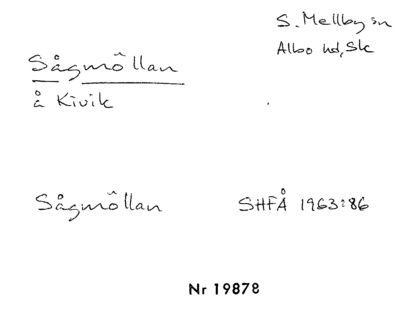 S. Mellby sn
Albo hd, Sk
Sågmöllan
å Kivik
Sågmöllan SHFÅ 1963:86
Nr 19878